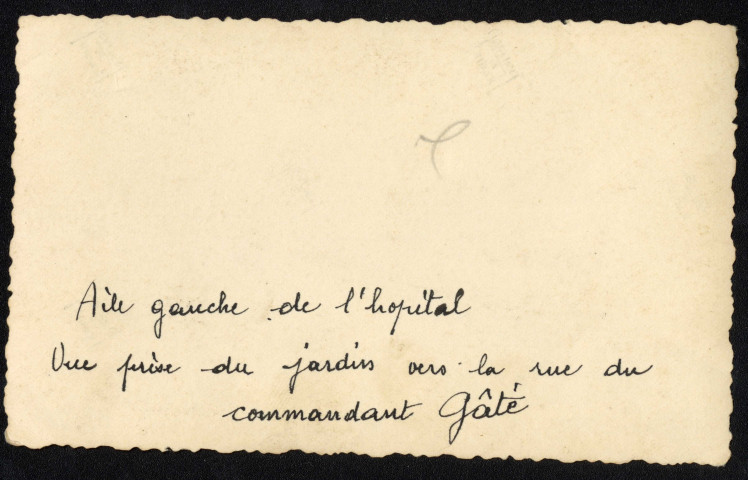 Aile gauche de l'hopital
Vue prise du jardin vers la rue du
commandant Gâté